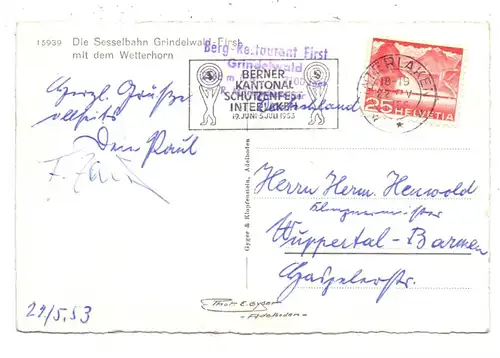 15939 Die Sesselbahn Grindelwald-First
mit dem Wetterhorn
Berg-Restaurant First
Grindelwald
BERNER
KANTONAL
SCHÜTZENFEST
INTERLAKEN
19. JUNI-5. JULI 1953
INTERLAKEN
18-19
25 HELVETIA
Herzl. Grüße
allseits
Dein Paul
Deutschland
Herrn Herm. Henwold
Wuppertal-Barmen
29/5.53
Gyger & Klopfenstein, Adelboden
Phot. E. Gyger
Adelboden